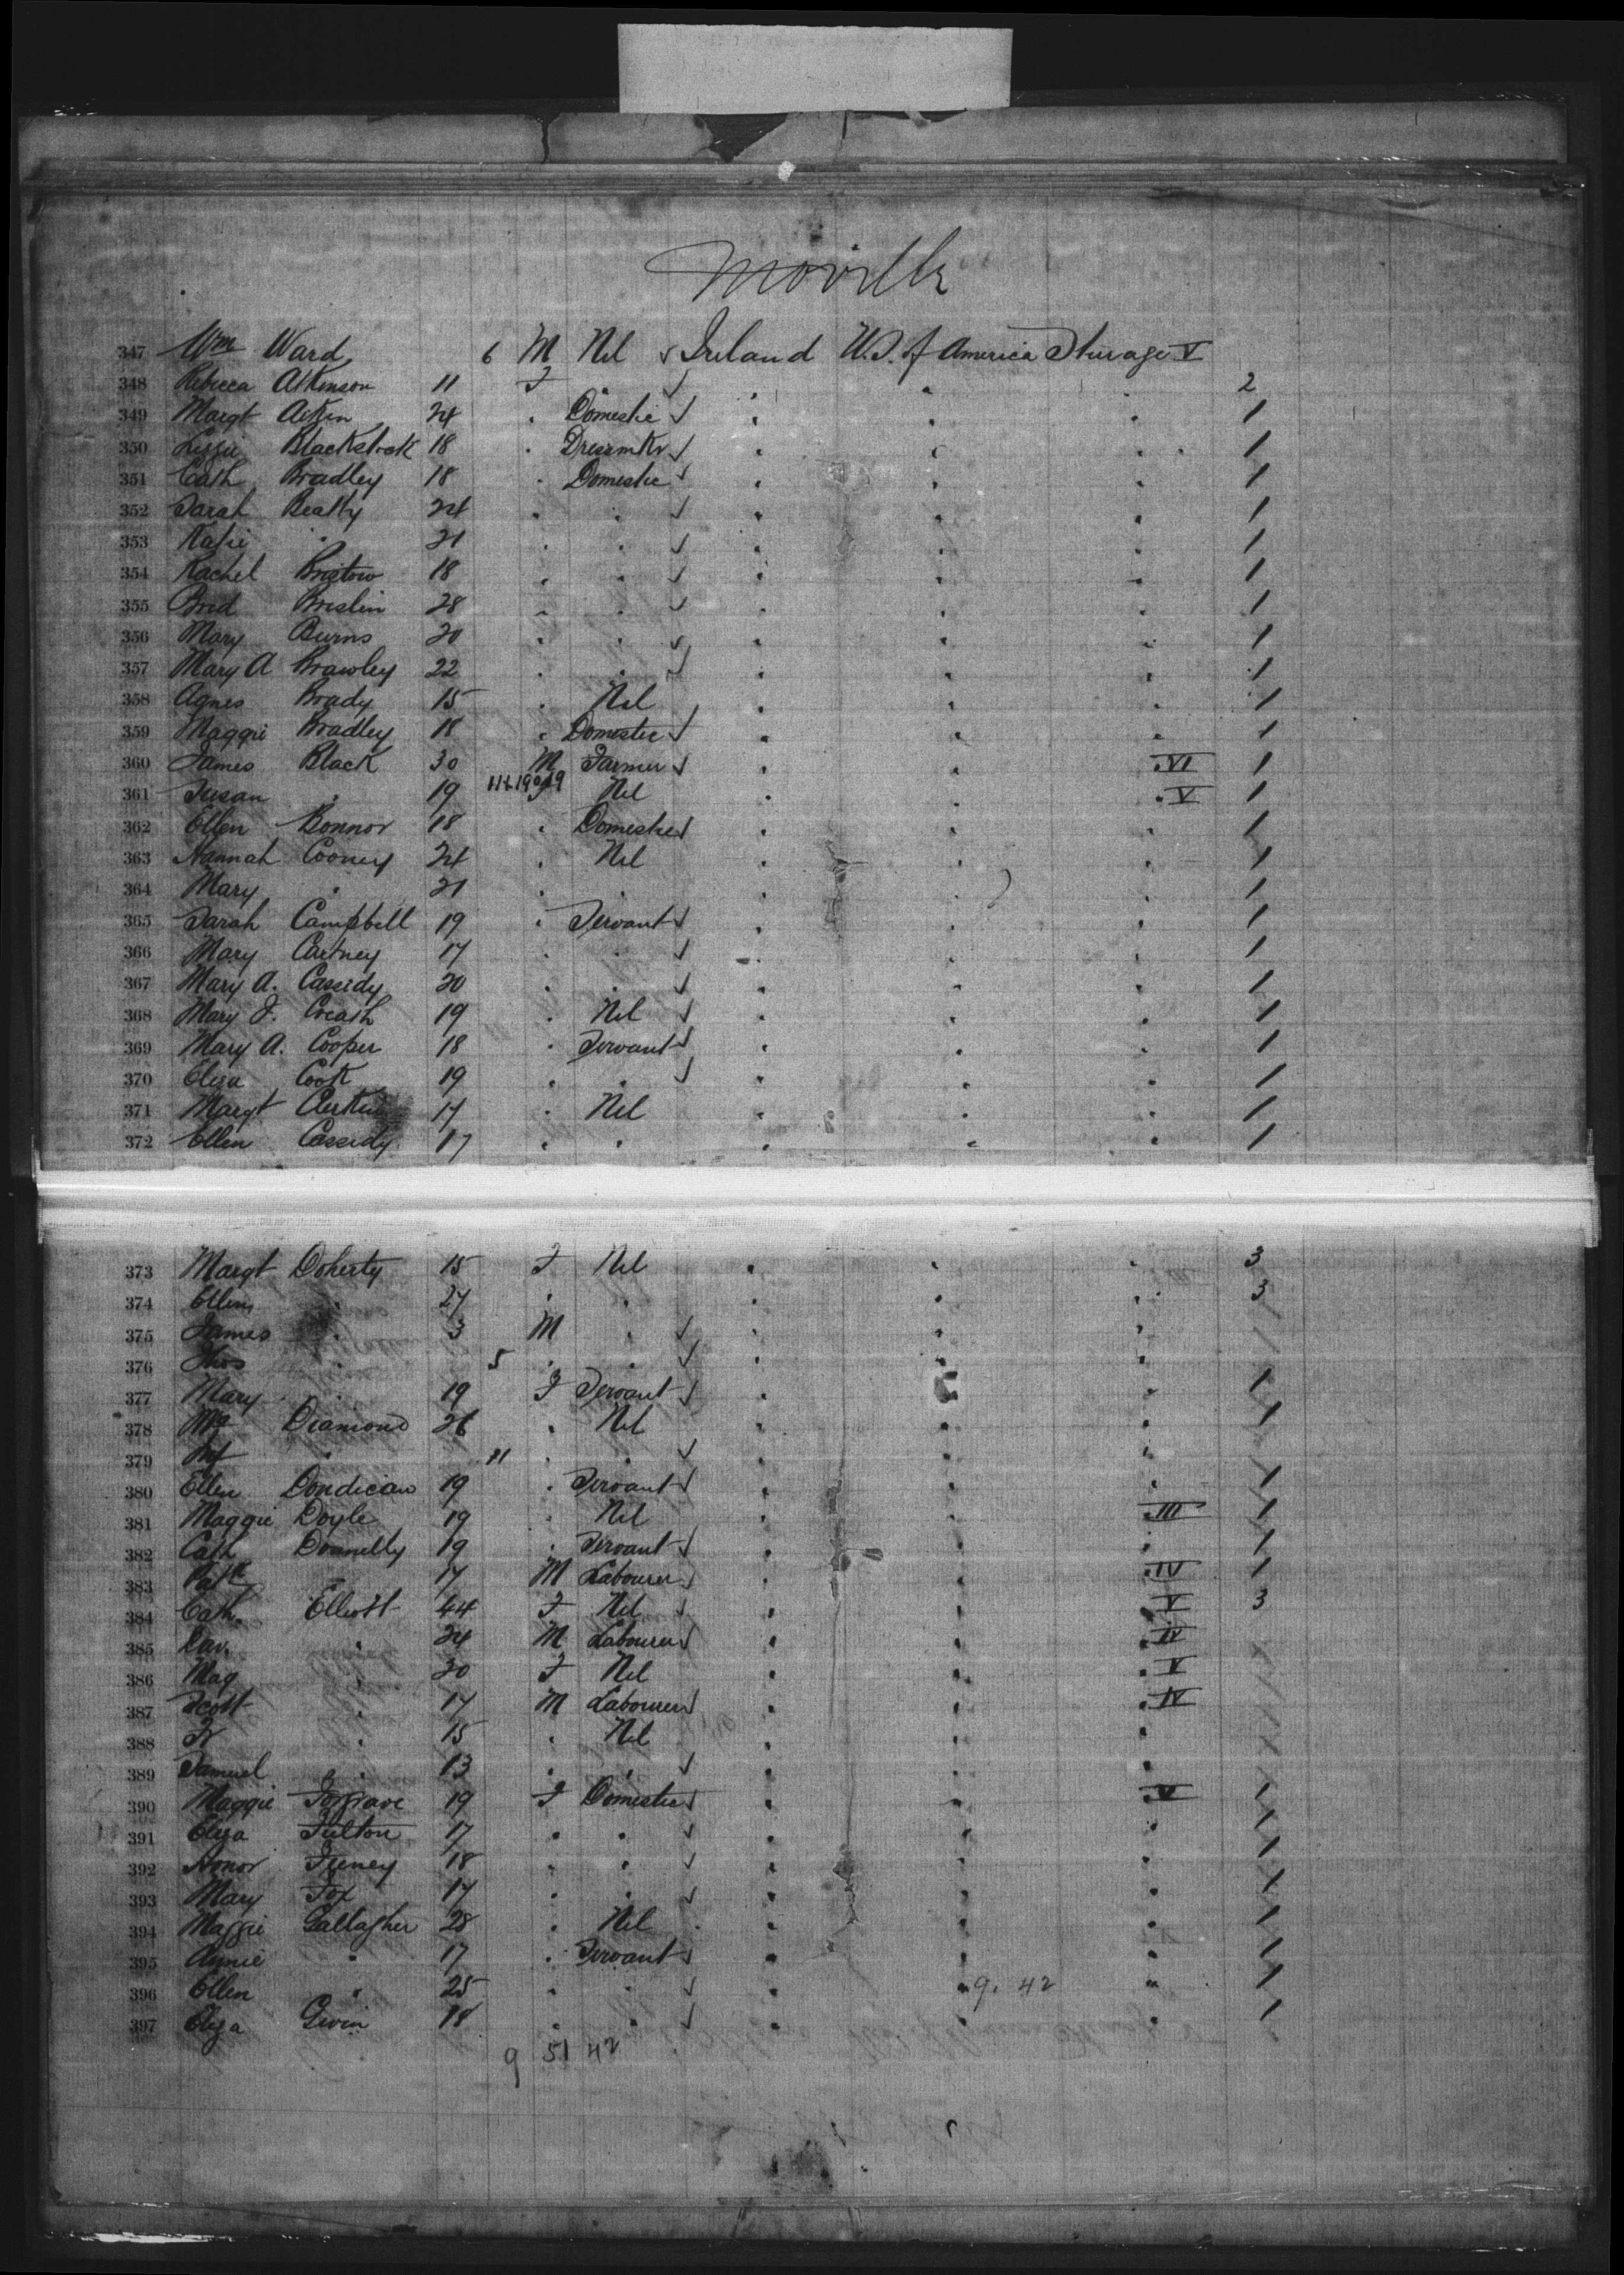 Moville
347 Wm Ward 6 M Nil ✓ Ireland U.S. of America Steerage V
348 Rebecca Atkinson 11 F . ✓ . . 2
349 Margt Aiken 24 . Domestic ✓ . . . 1
350 Lizzie Blackstock 18 . Dressmkr ✓ . . . 1
351 Cath Bradley 18 . Domestic ✓ . . . 1
352 Sarah Beatty 24 . . ✓ . . . 1
353 Katie . 21 . . ✓ . . . 1
354 Rachel Bristow 18 . . ✓ . . . 1
355 Brid Breslin 28 . . ✓ . . . 1
356 Mary Burns 20 . . ✓ . . . 1
357 Mary A Brawley 22 . . ✓ . . . 1
358 Agnes Brady 15 . Nil . . . 1
359 Maggie Bradley 18 . Domestic ✓ . . . 1
360 James Black 30 M Farmer ✓ . . . VI 1
361 Susan . 19 F Nil . . . V 1
362 Ellen Bonnor 18 . Domestic ✓ . . . 1
363 Hannah Cooney 24 . Nil . . . 1
364 Mary . 21 . . . . . 1
365 Sarah Campbell 19 . Servant ✓ . . . 1
366 Mary Cartney 17 . . ✓ . . . 1
367 Mary A. Cassidy 20 . . ✓ . . . 1
368 Mary J. Creash 19 . Nil ✓ . . . 1
369 Mary A. Cooper 18 . Servant ✓ . . . 1
370 Eliza Cook 19 . . ✓ . . . 1
371 Margt 17 . Nil . . . 1
372 Ellen Cassidy 17 . . . . . 1
373 Margt Doherty 15 F Nil . . . 3
374 Ellen . 27 . . . . . 3
375 James . 3 M . ✓ . . .
376 Thos . 5 . . ✓ . . .
377 Mary . 19 F Servant ✓ . . . 1
378 Diamond 26 . Nil . . . 1
379 . 11 . . ✓ . . .
380 Ellen Dondican 19 . Servant ✓ . . . 1
381 Maggie Doyle 19 . Nil . . . III 1
382 Cath Donnelly 19 . Servant ✓ . . . 1
383 Patk 17 M Labourer ✓ . . . IV 1
384 Cath. Elliott 44 F Nil ✓ . . V 3
385 Dav. . 24 M Labourer ✓ . . . IV
386 Mag . 20 F Nil . . . V
387 Scott . 17 M Labourer ✓ . . . IV
388 . 15 . Nil . . .
389 Samuel . 13 . . ✓ . . .
390 Maggie Forgrave 19 F Domestic ✓ . . . V 1
391 Eliza Fulton 17 . . ✓ . . . 1
392 Honor Feeney 18 . . ✓ . . . 1
393 Mary Fox 17 . . ✓ . . . 1
394 Maggie Gallagher 28 . Nil . . . 1
395 Annie " 17 . Servant ✓ . . . 1
396 Ellen " 25 . . ✓ . . 9. 42 " 1
397 Eliza Givin 18 . . ✓ . . . 1
9 51 42